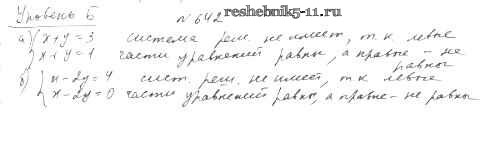 Уровень Б
№ 642
reshebnik5-11.ru
а) { x+y=3 система реш. не имеет, т к левые
x+y=1 части уравнений равны, а правые - не равны
б) { x-2y=4 сист. реш. не имеет, т к левые
x-2y=0 части уравнений равны, а правые - не равны